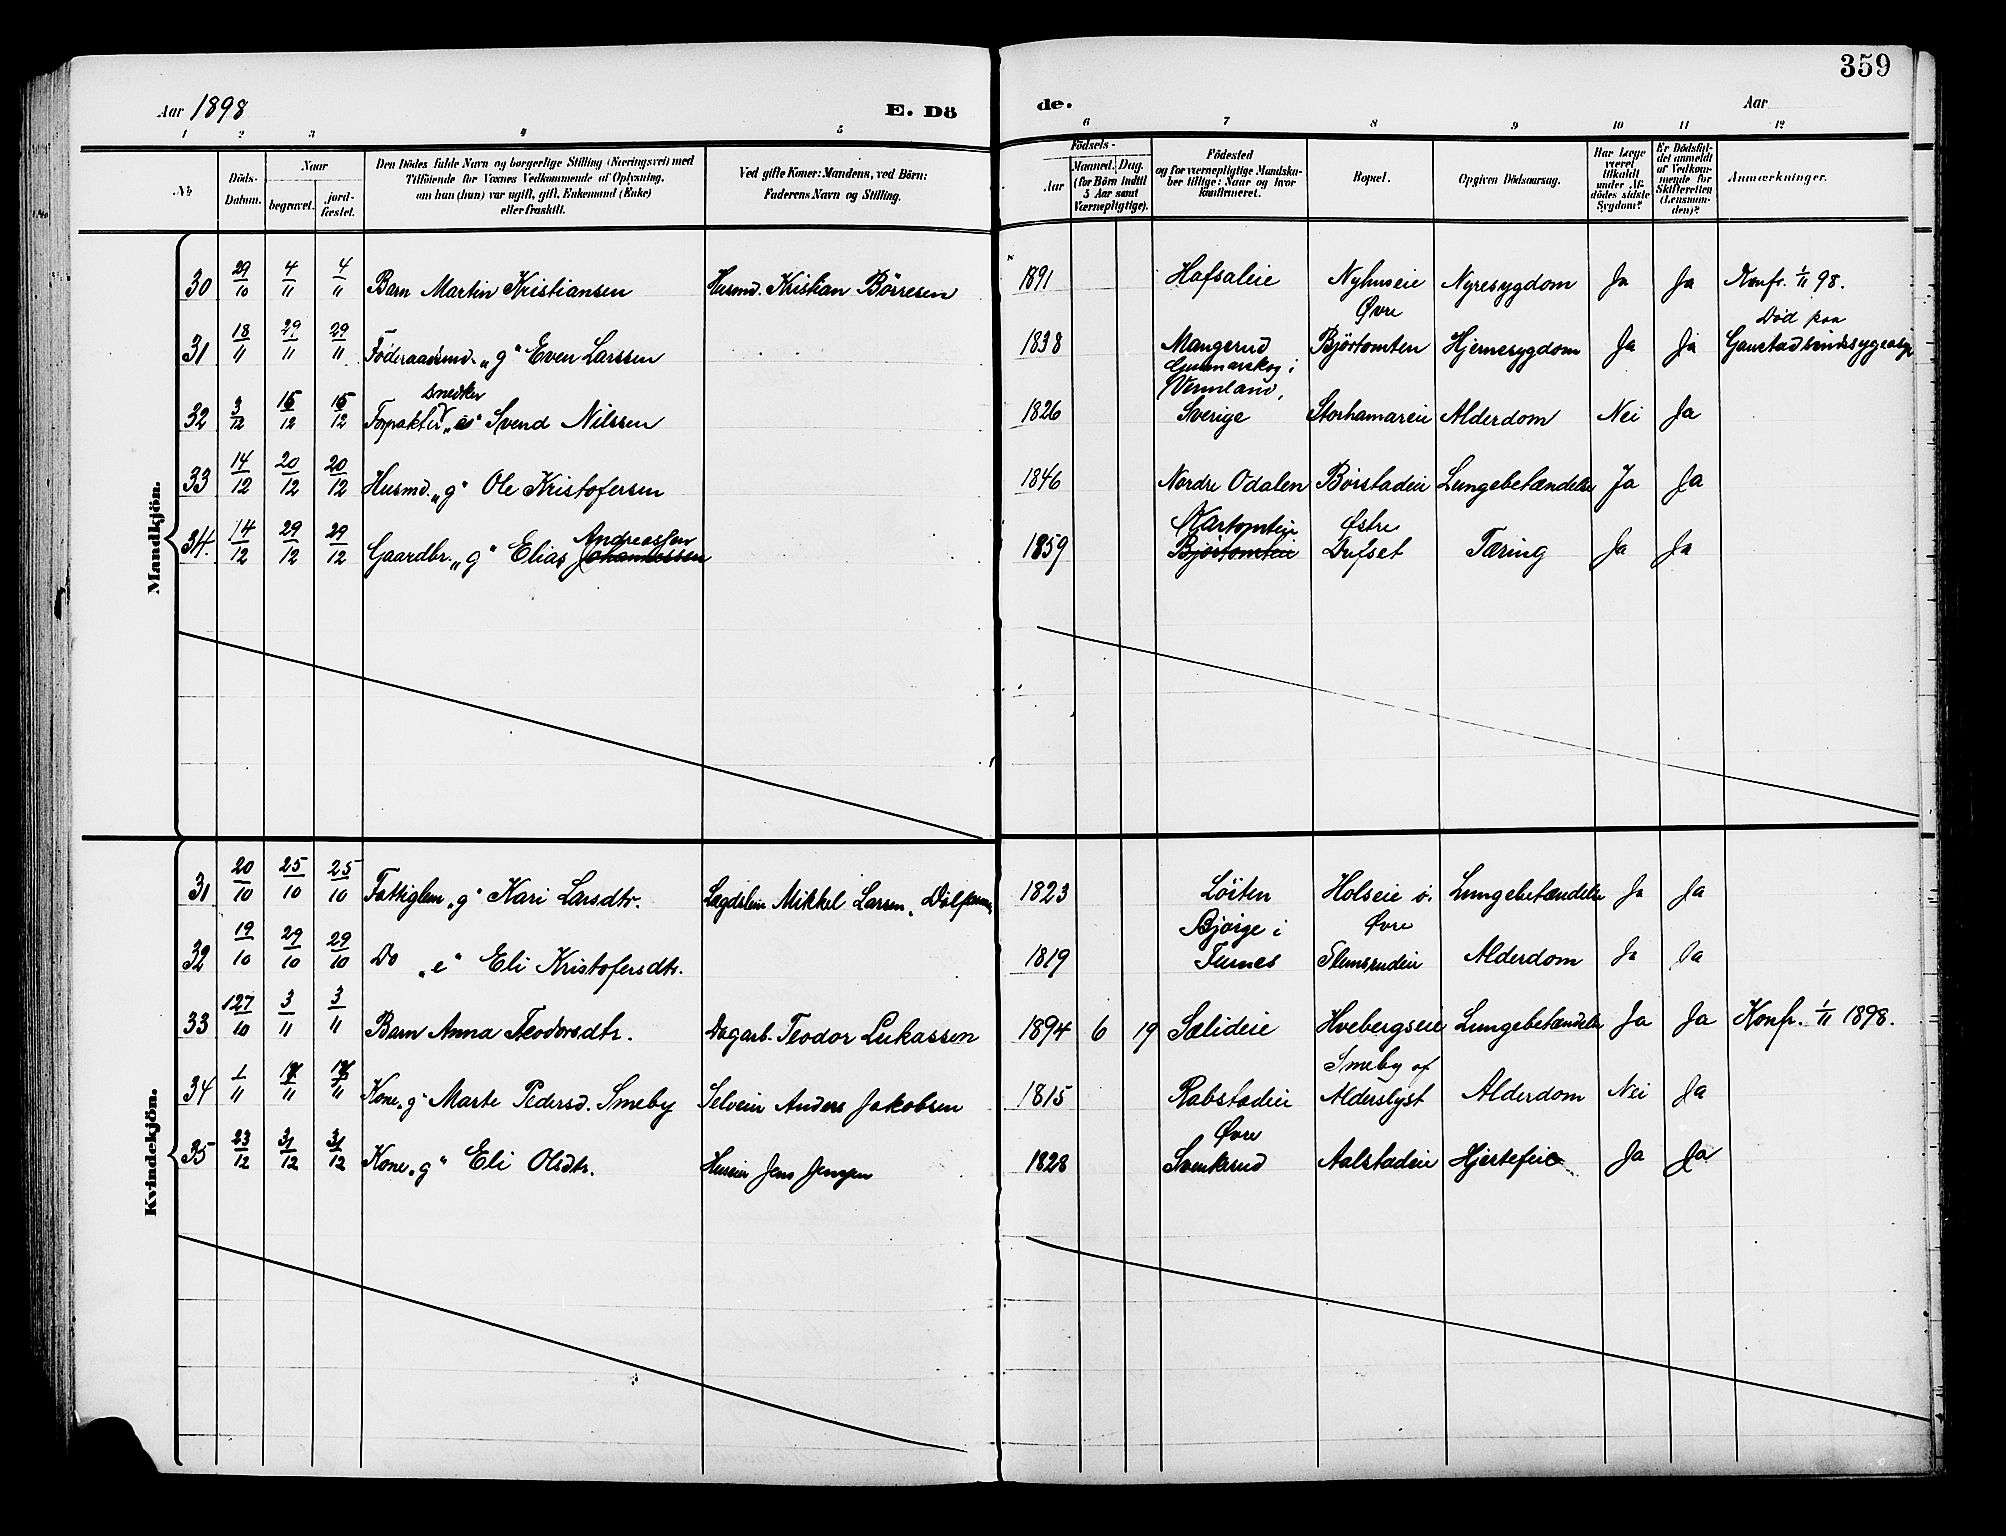 359
Aar 1898 E. Dö de. Aar
1 2 3 4 5 6 7 8 9 10 11 12
№ Döds-Datum. Naar begravet. jord-fæstet. Den Dödes fulde Navn og borgerlige Stilling (Næringsvei) med Tilföiende for Voxnes Vedkommende af Oplysning, om han (hun) var ugift, gift, Enkemand (Enke) eller fraskilt. Ved gifte Koner: Mandens, ved Börn: Faderens Navn og Stilling. Födsels- Aar Maaned. Dag. (for Börn indtil 5 Aar samt Værnepligtige). Födested og for værnepligtige Mandska-ber tillige: Naar og hvor konfirmeret. Bopæl. Opgiven Dödsaarsag. Har Læge været tilkaldt under Af-dödes sidste Sygdom? Er Dödsfal-det anmeldt af Vedkom-mende for Skifteretten (Lensman-den)? Anmærkninger.
Mandkjön.
30 29/10 4/11 4/11 Barn Martin Kristiansen Husmd. Kristian Börresen 1891 Hafsaleie Nyhuseie Nyresygdom Ja Ja Konfr. 1/11 98.
31 18/11 29/11 29/11 Föderaadsmd. "g" Even Larssen 1838 Mangerud Øvre Björtomten Hjernesygdom Ja Ja Död paa Gaustad sindssygeasyl
32 3/12 15/12 15/12 Forpakter snedker "e" Svend Nilssen 1826 Gunnarskog i Vermland, Sverige Storhamareie Alderdom Nei Ja
33 14/12 20/12 20/12 Husmd. "g" Ole Kristofersen 1846 Nordre Odalen Börstadeie Lungebetændelse Ja Ja
34. 14/12 29/12 29/12 Gaardbr. "g" Elias Johannessen Andreassen 1859 Björtomteie Kartomteie Østre Dufset Tæring Ja Ja
Kvindekjön.
31 20/10 25/10 25/10 Fattiglem "g" Kari Larsdtr. Lægdslem Mikkel Larsen, 1823 Löiten Holseie ö. Lungebetændelse Ja Ja
32 19/10 29/10 29/10 Do "e" Eli Kristofersdtr. 1819 Bjørge i Furnes Øvre Slemsrudeie Alderdom Ja Ja
33 127/10 3/11 3/11 Barn Anna Teodorsdtr. Dagarb. Teodor Lukassen 1894 6 19 Sælideie Hvebergseie Lungebetændelse Ja Ja Konfr. 1/11 1898.
34 1/11 /11 /11 Kone "g" Marte Pedersd. Smeby Selveier Anders Jakobsen 1815 Rabstadeie Smeby af Alderslyst Alderdom Nei Ja
35 23/12 31/12 31/12 Kone "g" Eli Olsdtr. Jens Jensen 1828 Øvre Svenkerud Aalstadeie Hjertefeil Ja Ja